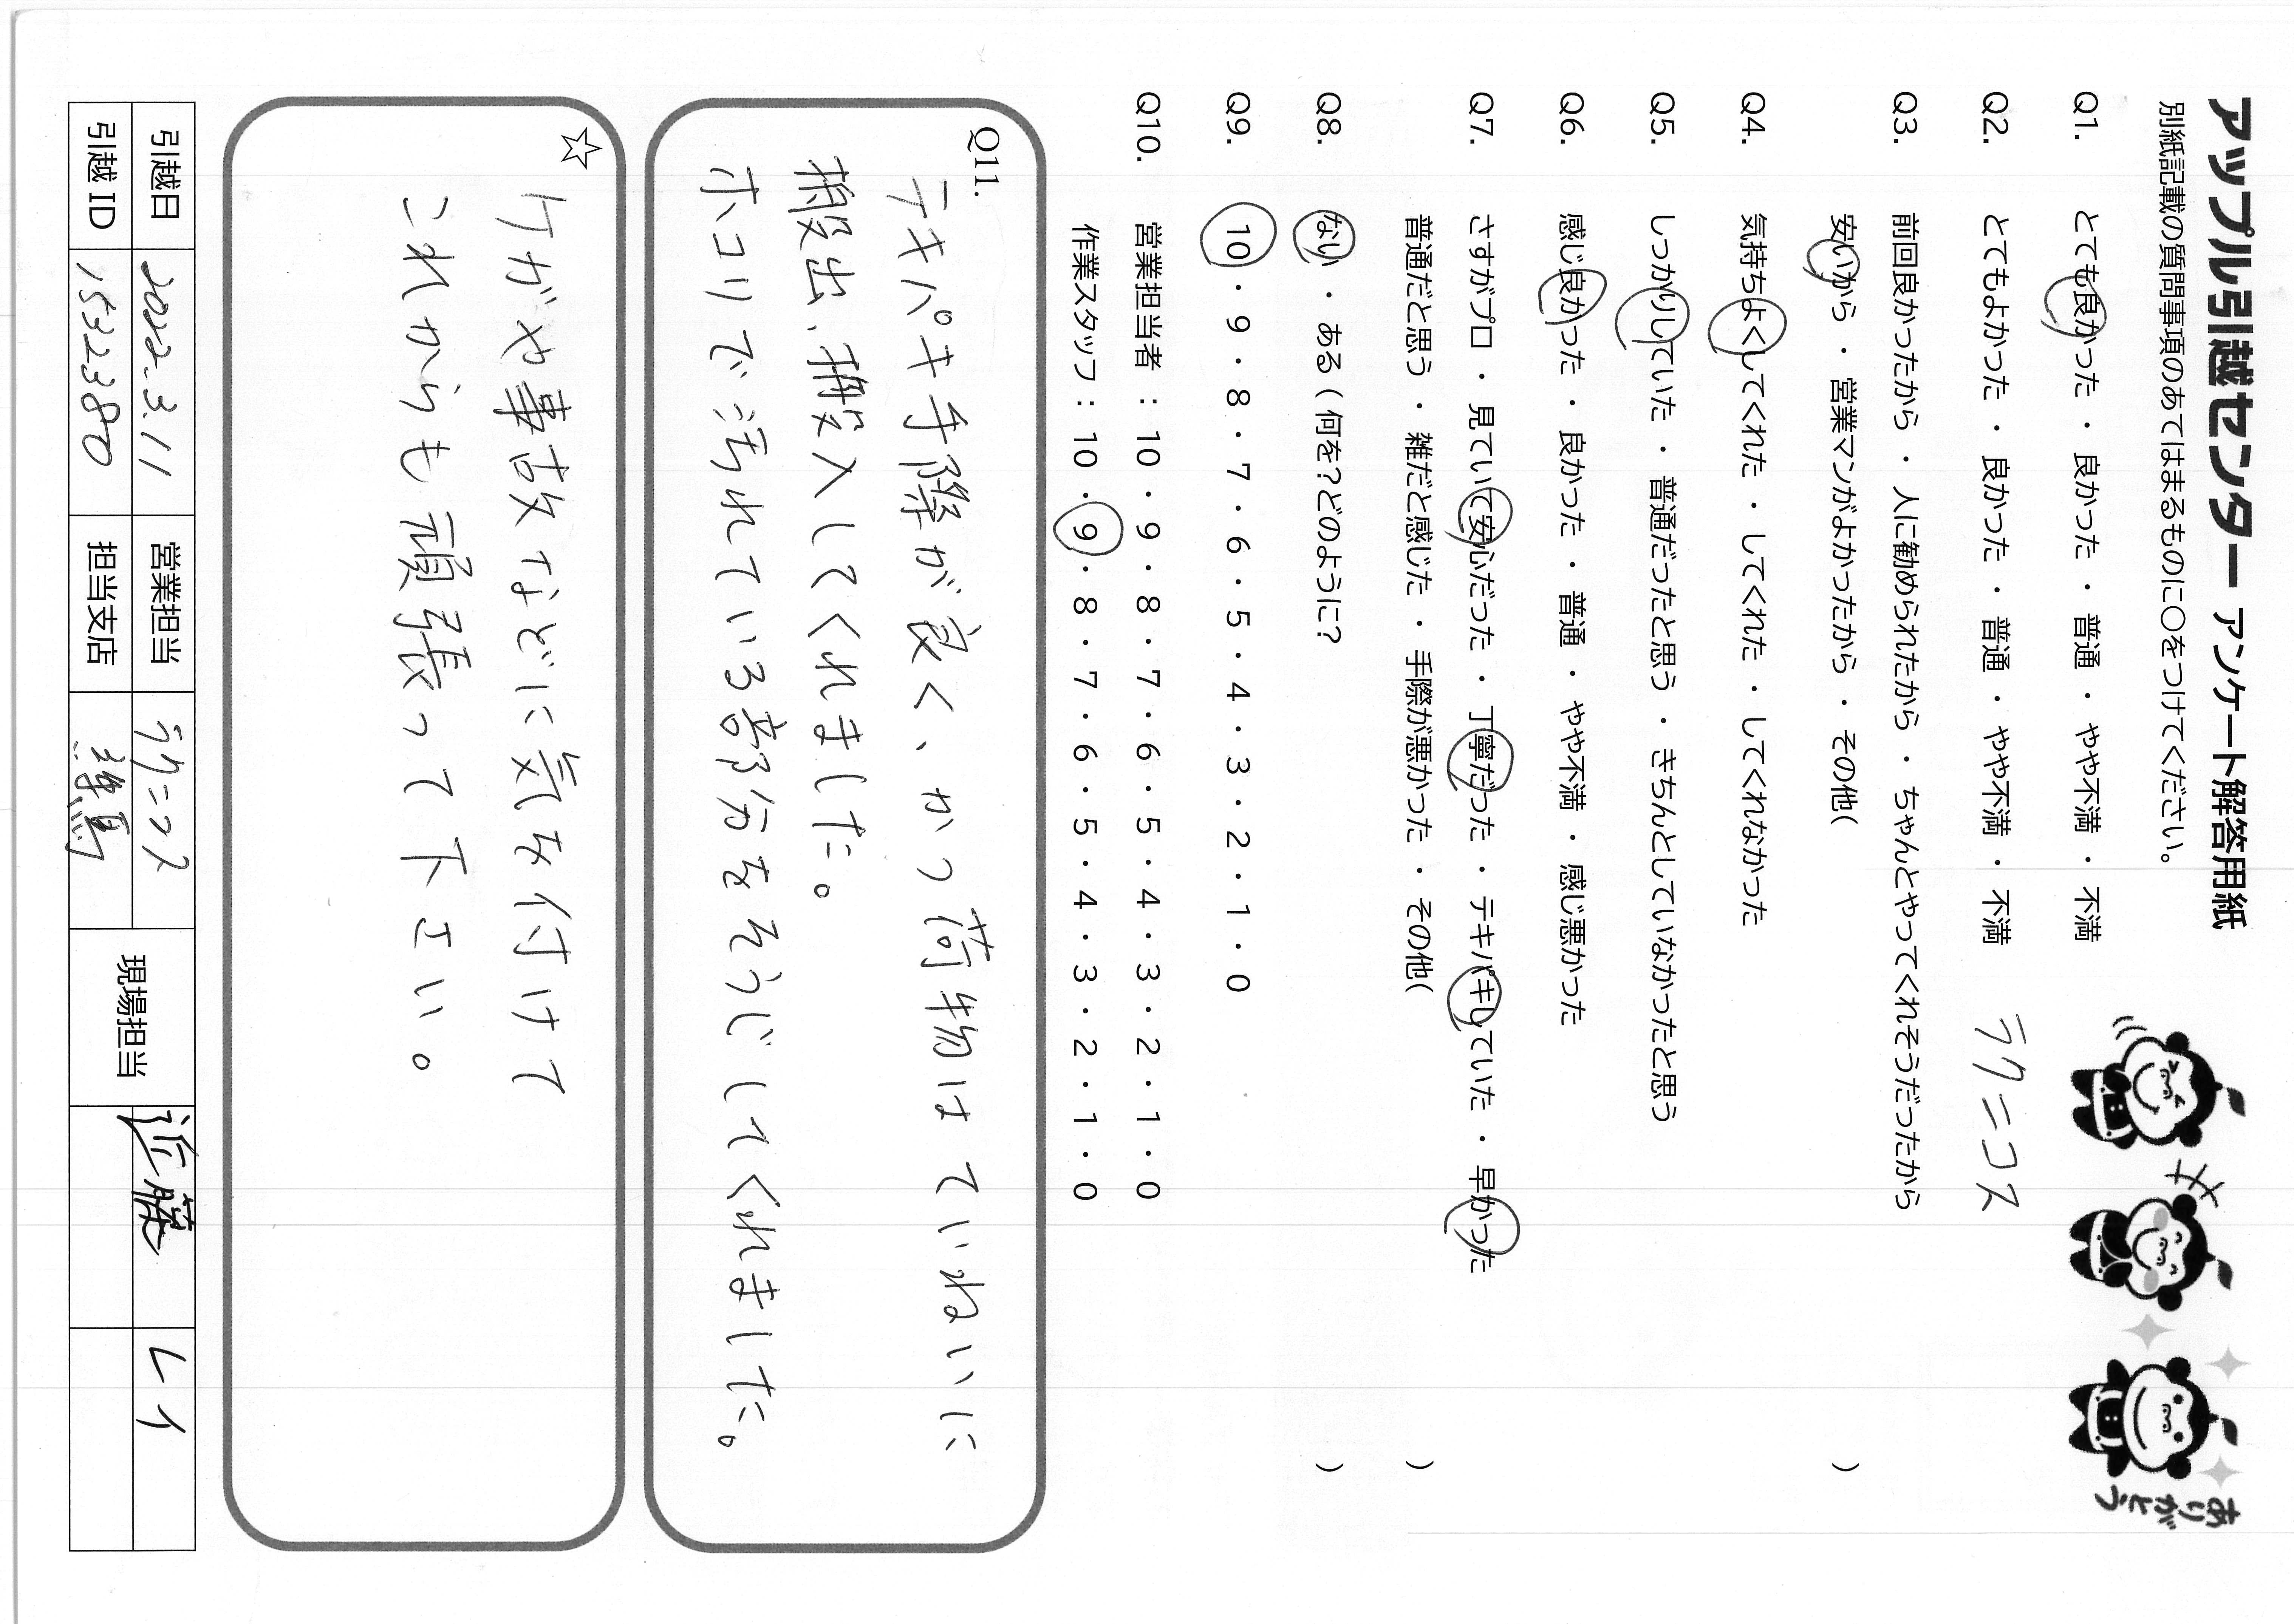 アップル引越センター アンケート解答用紙
別紙記載の質問事項のあてはまるものに○をつけてください。
ありがとう
Q1. とても良かった ・ 良かった ・ 普通 ・ やや不満 ・ 不満
Q2. とてもよかった ・ 良かった ・ 普通 ・ やや不満 ・ 不満 ラクニコス
Q3. 前回良かったから ・ 人に勧められたから ・ ちゃんとやってくれそうだったから
安いから ・ 営業マンがよかったから ・ その他( )
Q4. 気持ちよくしてくれた ・ してくれた ・ してくれなかった
Q5. しっかりしていた ・ 普通だったと思う ・ きちんとしていなかったと思う
Q6. 感じ良かった ・ 良かった ・ 普通 ・ やや不満 ・ 感じ悪かった
Q7. さすがプロ ・ 見ていて安心だった ・ 丁寧だった ・ テキパキしていた ・ 早かった
普通だと思う ・ 雑だと感じた ・ 手際が悪かった ・ その他( )
Q8. ない ・ ある ( 何を?どのように? )
Q9. 10 ・ 9 ・ 8 ・ 7 ・ 6 ・ 5 ・ 4 ・ 3 ・ 2 ・ 1 ・ 0
Q10. 営業担当者 : 10 ・ 9 ・ 8 ・ 7 ・ 6 ・ 5 ・ 4 ・ 3 ・ 2 ・ 1 ・ 0
作業スタッフ : 10 ・ 9 ・ 8 ・ 7 ・ 6 ・ 5 ・ 4 ・ 3 ・ 2 ・ 1 ・ 0
Q11.
テキパキ手際が良く、かつ荷物はていねいに
搬出、搬入してくれました。
ホコリで汚れている部分をそうじしてくれました。
☆
ケガや事故などに気を付けて
これからも頑張って下さい。
引越日 2022.3.11 営業担当 ラクニコス 現場担当 近藤 レイ
引越 ID 1532380 担当支店 練馬